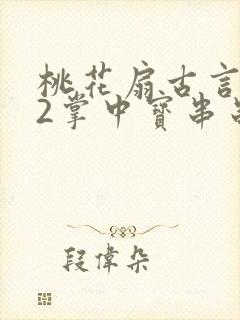 桃花扇古言
2掌中寶串
段偉朵